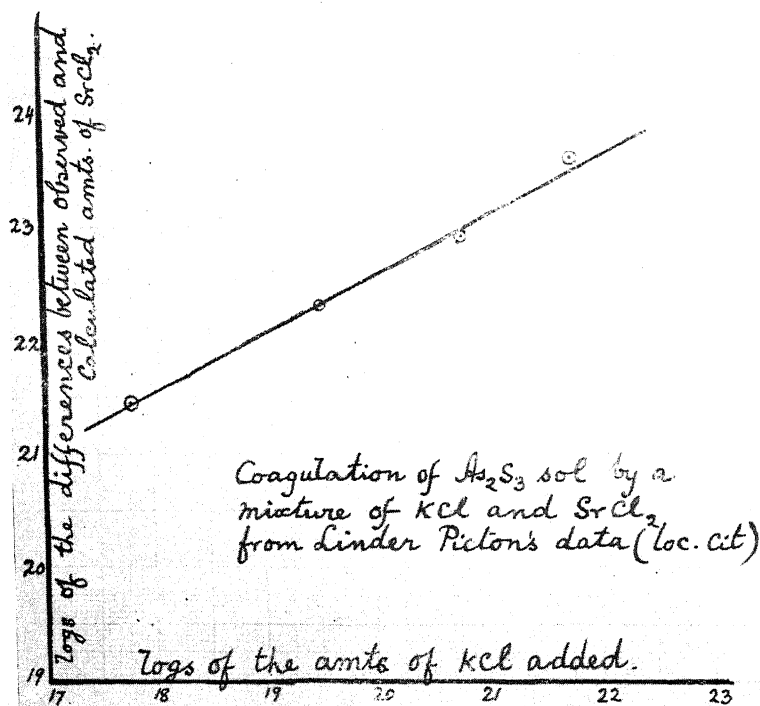 logs of the differences between observed and
Calculated amts. of SrCl₂.
24
23
22
21
20
19
Coagulation of As₂S₃ sol by a
mixture of KCl and SrCl₂
from Linder Picton's data (loc. cit)
logs of the amts of KCl added.
17 18 19 20 21 22 23